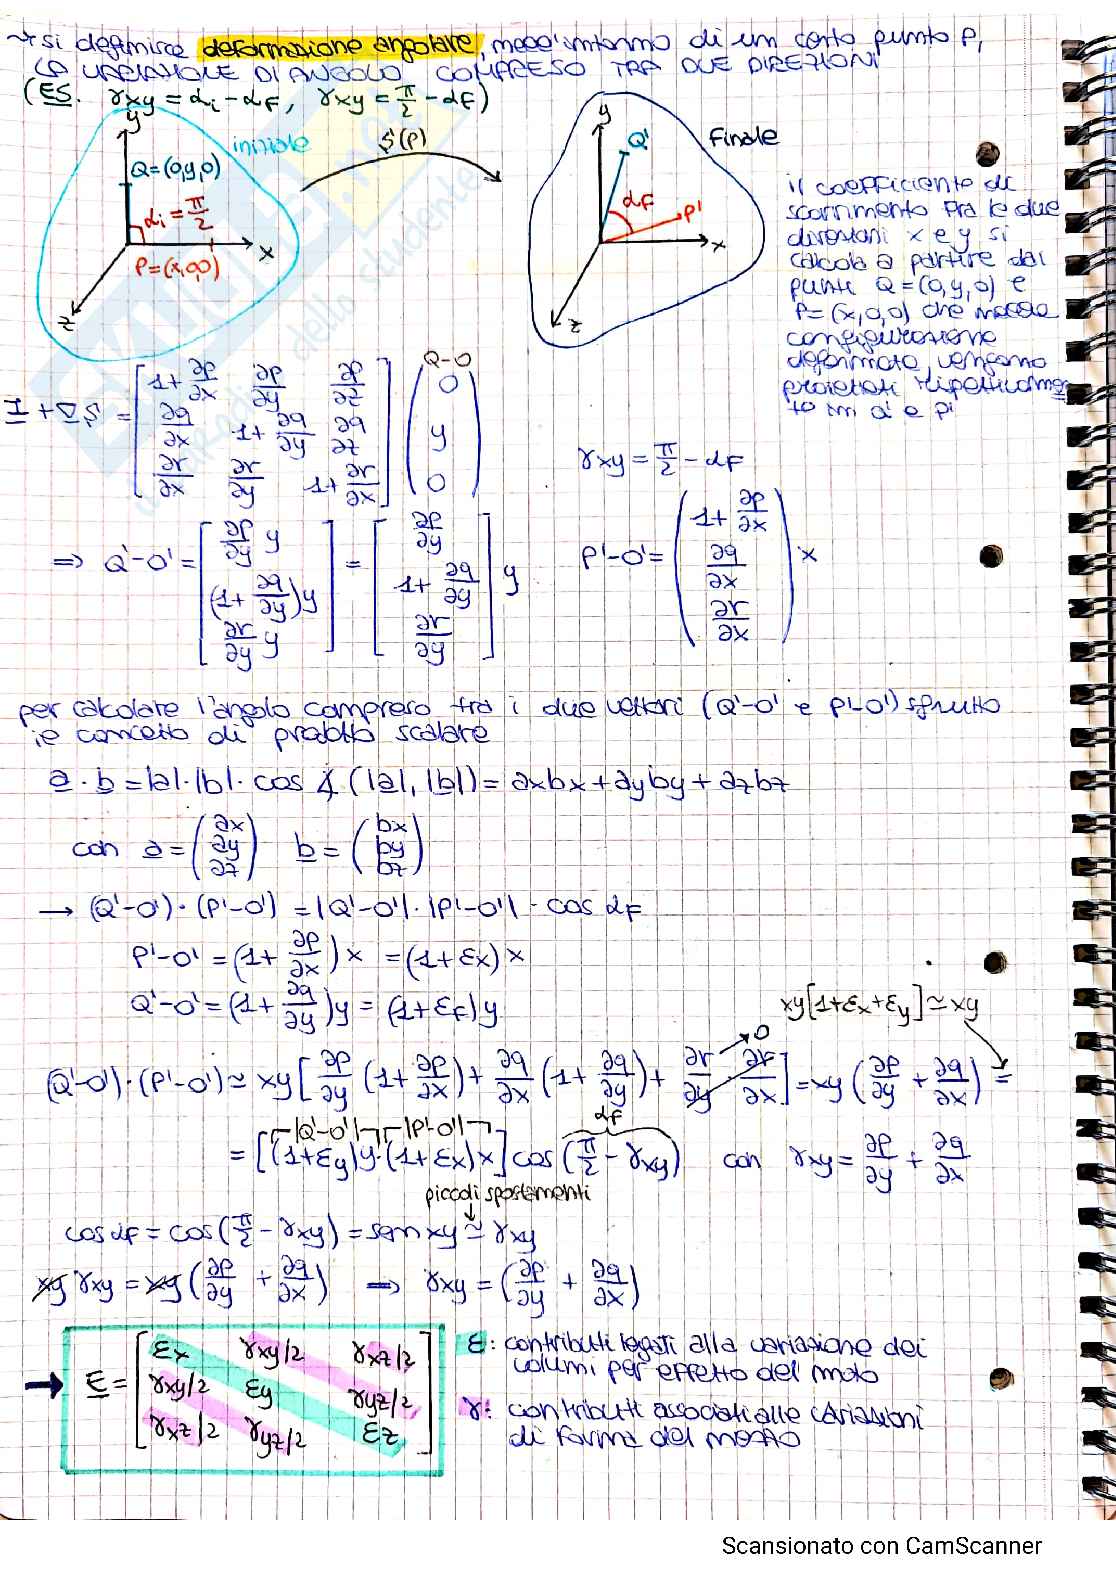 → si definisce deformazione angolare, nell'intorno di un certo punto P,
LA VARIAZIONE DI ANGOLO COMPRESO TRA DUE DIREZIONI
(ES. γxy = αi - αF, γxy = π/2 - αF)
y
iniziale
Q=(0,y,0)
αi = π/2
P=(x,0,0)
x
z
S(P)
y
Q'
Finale
αF
P'
x
z
il coefficiente di
scorrimento fra le due
direzioni x e y si
calcola a partire dai
punti Q=(0,y,0) e
P=(x,0,0) che nella
configurazione
deformata, vengono
proiettati rispettivamen
te in Q' e P'
Q-O
S∇ + I = [1+∂p/∂x ∂p/∂y ∂p/∂z] (0)
[∂q/∂x 1+∂q/∂y ∂q/∂z] (y)
[∂r/∂x ∂r/∂y 1+∂r/∂x] (0)
γxy = π/2 - αF
⇒ Q'-O' = [∂p/∂y y, (1+∂q/∂y)y, ∂r/∂y y] = [∂p/∂y, 1+∂q/∂y, ∂r/∂y] y
P'-O' = (1+∂p/∂x, ∂q/∂x, ∂r/∂x) x
per calcolare l'angolo compreso fra i due vettori (Q'-O' e P'-O') sfrutto
il concetto di prodotto scalare
a · b = |a|·|b|· cos ∡ (|a|, |b|) = axbx + ayby + azbz
con a = (ax ay az) b = (bx by bz)
→ (Q'-O')·(P'-O') = |Q'-O'|·|P'-O'| · cos αF
P'-O' = (1+∂p/∂x) x = (1+εx) x
Q'-O' = (1+∂q/∂y) y = (1+εF) y
xy[1+εx+εy] ≃ xy
(Q'-O')·(P'-O') ≃ xy [∂p/∂y (1+∂p/∂x) + ∂q/∂x (1+∂q/∂y) + ∂r/∂y ∂r/∂x] = xy (∂p/∂y + ∂q/∂x) =
0
|Q'-O'| |P'-O'| αF
= [(1+εy)y·(1+εx)x] cos(π/2 - γxy) con γxy = ∂p/∂y + ∂q/∂x
piccoli spostamenti
cos αF = cos(π/2 - γxy) = sen xy ≃ γxy
xy γxy = xy (∂p/∂y + ∂q/∂x) ⇒ γxy = (∂p/∂y + ∂q/∂x)
→ E = [εx γxy/2 γxz/2]
[γxy/2 εy γyz/2]
[γxz/2 γyz/2 εz]
ε: contributi legati alla variazione dei
volumi per effetto del moto
γ: contributi associati alle variazioni
di forma del mezzo
Scansionato con CamScanner